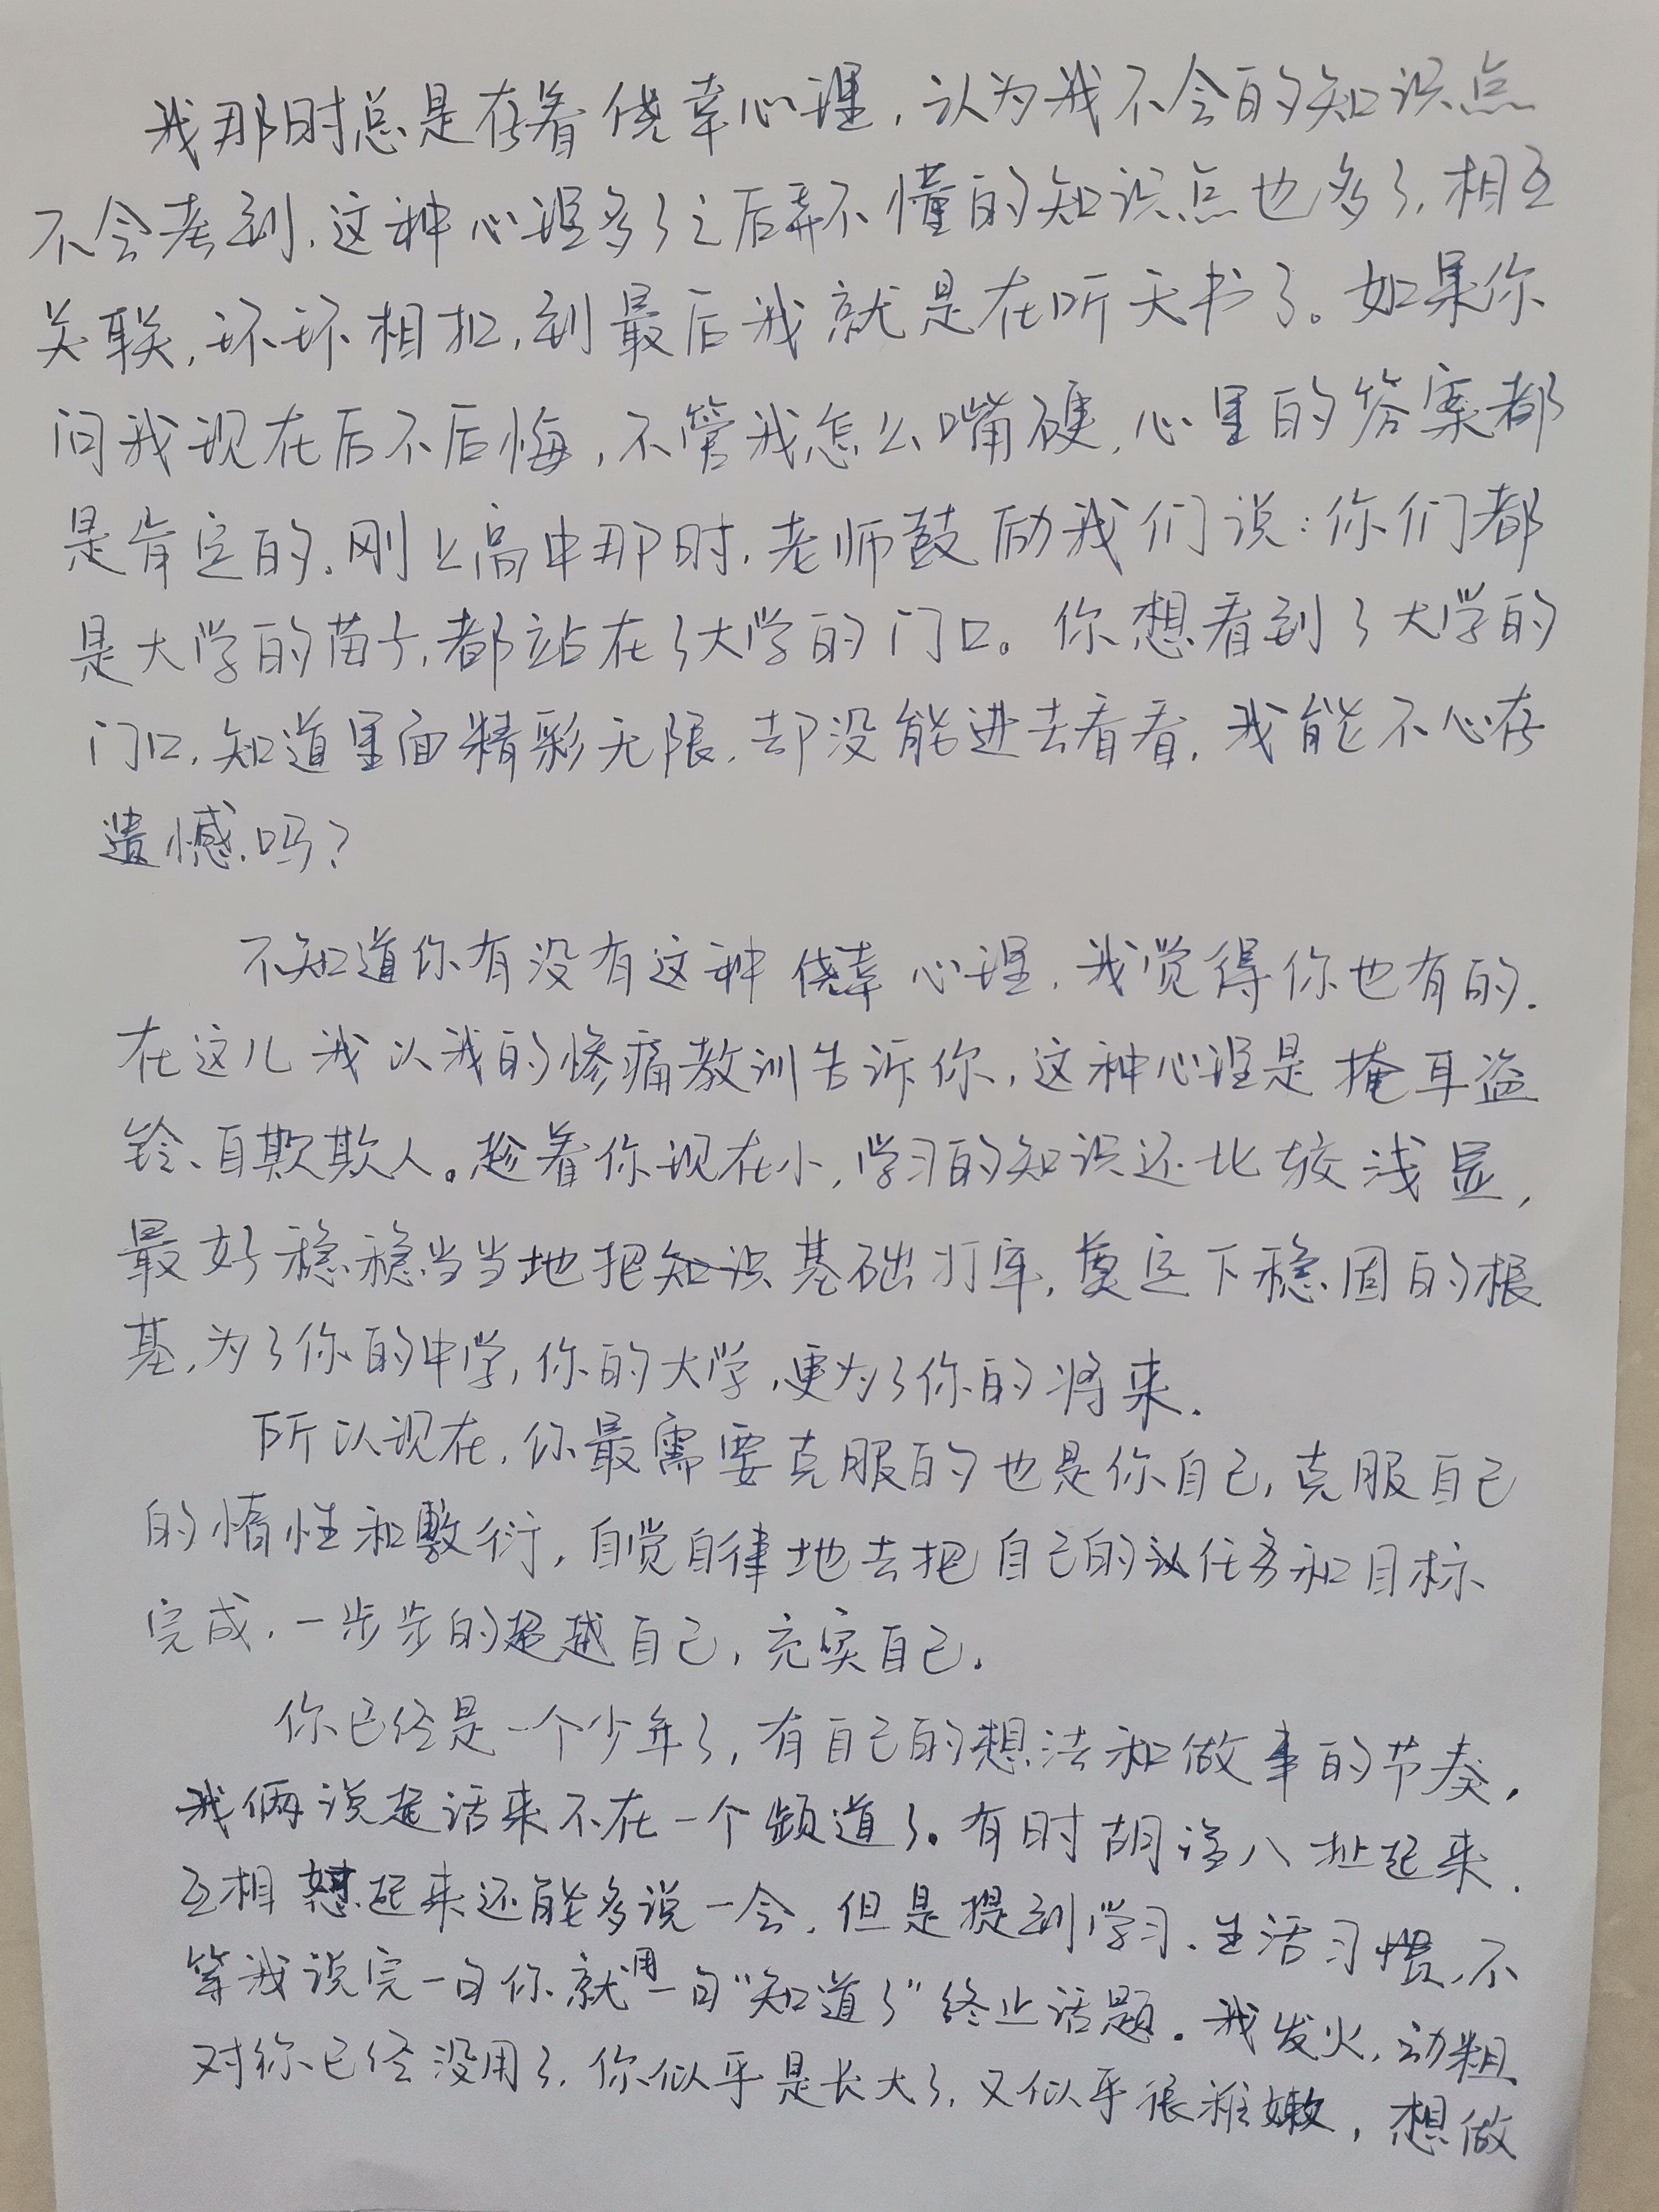 我那时总是存着侥幸心理,认为我不会的知识点
不会考到,这种心理多了之后弄不懂的知识点也多了,相互
关联,环环相扣,到最后我就是在听天书了。如果你
问我现在后不后悔,不管我怎么嘴硬,心里的答案都
是肯定的。刚上高中那时,老师鼓励我们说:你们都
是大学的苗子,都站在了大学的门口。你想看到了大学的
门口,知道里面精彩无限,却没能进去看看,我能不心存
遗憾吗?
不知道你有没有这种侥幸心理,我觉得你也有的.
在这儿我以我的惨痛教训告诉你,这种心理是掩耳盗
铃、自欺欺人。趁着你现在小,学习的知识还比较浅显,
最好稳稳当当地把知识基础打牢,奠定下稳固的根
基,为了你的中学,你的大学,更为了你的将来.
所以现在,你最需要克服的也是你自己,克服自己
的惰性和敷衍,自觉自律地去把自己的任务和目标
完成,一步步的超越自己,充实自己.
你已经是一个少年了,有自己的想法和做事的节奏,
我俩说起话来不在一个频道了。有时胡诌八扯起来,
互相怼起来还能多说一会,但是提到学习、生活习惯,不
等我说完一句你就用一句“知道了”终止话题.我发火,动粗
对你已经没用了,你似乎是长大了,又似乎很稚嫩,想做